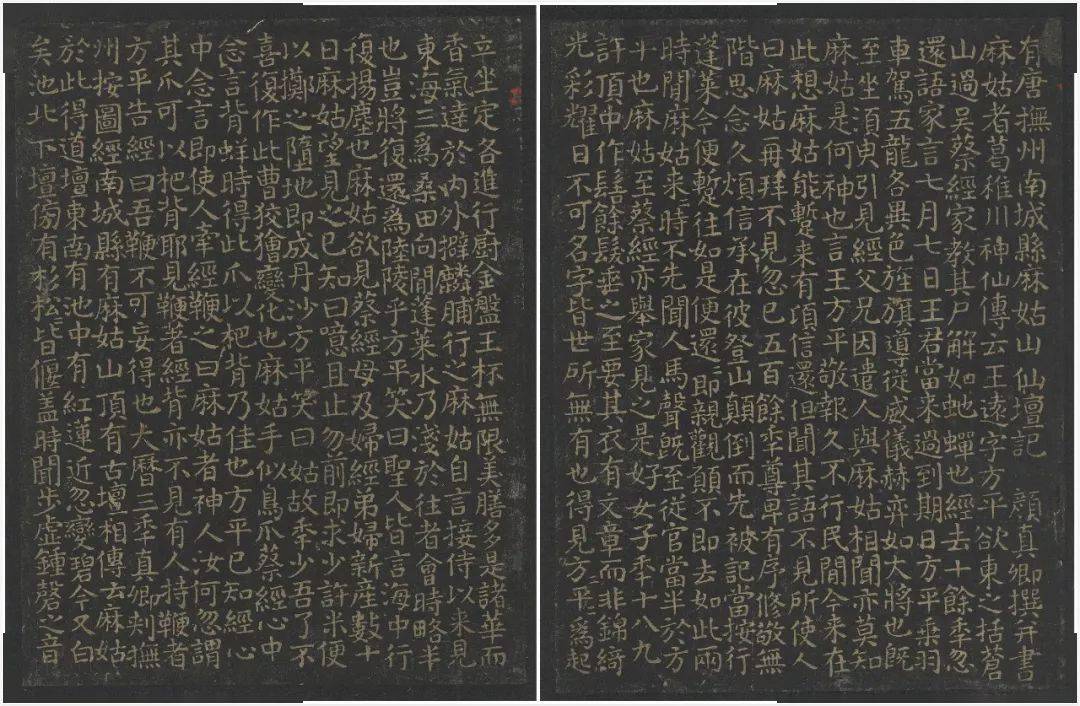 有唐撫州南城縣麻姑山仙壇記 顏真卿撰并書
麻姑者葛稚川神仙傳云王遠字方平欲東之括蒼
山過吳蔡經家教其尸解如虵蟬也經去十餘年忽
還語家言七月七日王君當來過到期日方平乗羽
車駕五龍各異色旌旗導従威儀赫弈如大將也旣
至坐須臾引見經父兄因遣人與麻姑相聞亦莫知
麻姑是何神也言王方平敬報久不行民間今来在
此想麻姑能蹔来有頃信還但聞其語不見所使人
曰麻姑再拝不見忽已五百餘年尊卑有序修敬無
階思念久煩信承在彼登山顛倒而先被記當按行
蓬萊今便蹔往如是便還還即親觀願不即去如此兩
時聞麻姑来来時不先聞人馬聲旣至従官當半於方
平也麻姑至蔡經亦舉家見之是好女子年十八九
許頂中作髻餘髮垂之至要其衣有文章而非錦綺
光彩耀日不可名字皆世所無有也得見方平方平為起
立坐定各進行廚金盤玉杯無限美膳多是諸華而
香氣達於內外擗麟脯行之麻姑自言接侍以来見
東海三為桑田向間蓬萊水乃淺於往者會時略半
也豈將復還為陸陵乎方平笑曰聖人皆言海中行
復揚塵也麻姑欲見蔡經母及婦經弟婦新産數十
日麻姑望見之已知曰噫且止勿前即求少許米便
以擲之墮地即成丹沙方平笑曰姑故年少吾了不
喜復作此曹狡獪變化也麻姑手似鳥爪蔡經心中
念言背蛘時得此爪以杷背乃佳也方平已知經心
中念言即使人牽經鞭之曰麻姑者神人汝何忽謂
其爪可以杷背耶見鞭著經背亦不見有人持鞭者
方平告經曰吾鞭不可妄得也大曆三年真卿刺撫
州按圖經南城縣有麻姑山頂有古壇相傳云麻姑
於此得道壇東南有池中有紅蓮近忽變碧今又白
矣池北下壇傍有杉松皆偃盖時聞步虛鍾磬之音